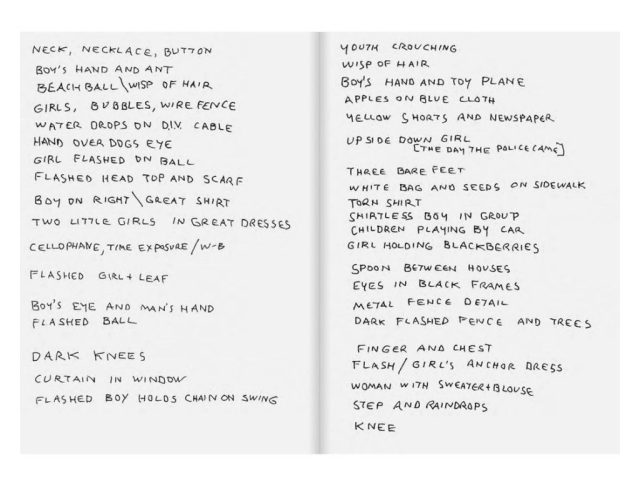 NECK, NECKLACE, BUTTON
BOY'S HAND AND ANT
BEACH BALL\WISP OF HAIR
GIRLS, BUBBLES, WIRE FENCE
WATER DROPS ON D.I.V. CABLE
HAND OVER DOGS EYE
GIRL FLASHED ON BALL
FLASHED HEAD TOP AND SCARF
BOY ON RIGHT\GREAT SHIRT
TWO LITTLE GIRLS IN GREAT DRESSES
CELLOPHANE, TIME EXPOSURE/W-B
FLASHED GIRL+LEAF
BOY'S EYE AND MAN'S HAND
FLASHED BALL
DARK KNEES
CURTAIN IN WINDOW
FLASHED BOY HOLDS CHAIN ON SWING
YOUTH CROUCHING
WISP OF HAIR
BOY'S HAND AND TOY PLANE
APPLES ON BLUE CLOTH
YELLOW SHORTS AND NEWSPAPER
UPSIDE DOWN GIRL
[THE DAY THE POLICE CAME]
THREE BARE FEET
WHITE BAG AND SEEDS ON SIDEWALK
TORN SHIRT
SHIRTLESS BOY IN GROUP
CHILDREN PLAYING BY CAR
GIRL HOLDING BLACKBERRIES
SPOON BETWEEN HOUSES
EYES IN BLACK FRAMES
METAL FENCE DETAIL
DARK FLASHED FENCE AND TREES
FINGER AND CHEST
FLASH/GIRL'S ANCHOR DRESS
WOMAN WITH SWEATER+BLOUSE
STEP AND RAINDROPS
KNEE